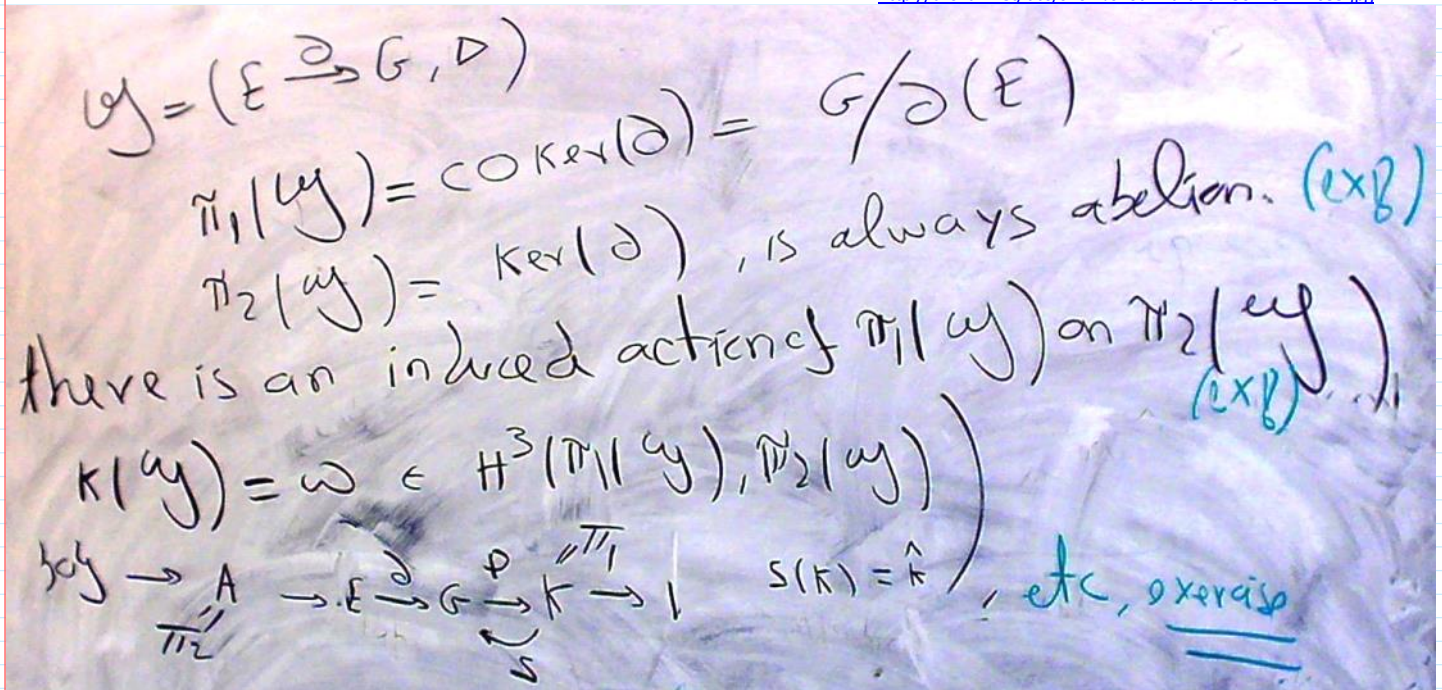 𝒢 = (E ∂→ G, ▷)
π₁(𝒢) = coker(∂) = G/∂(E)
π₂(𝒢) = ker(∂), is always abelian. (exg)
there is an induced action of π₁(𝒢) on π₂(𝒢)
(exg)
k(𝒢) = ω ∈ H³(π₁(𝒢), π₂(𝒢))
{0} → A → E ∂→ G p→ K → 1 s(k) = k̂, etc, exercise
π₂ π₁ s